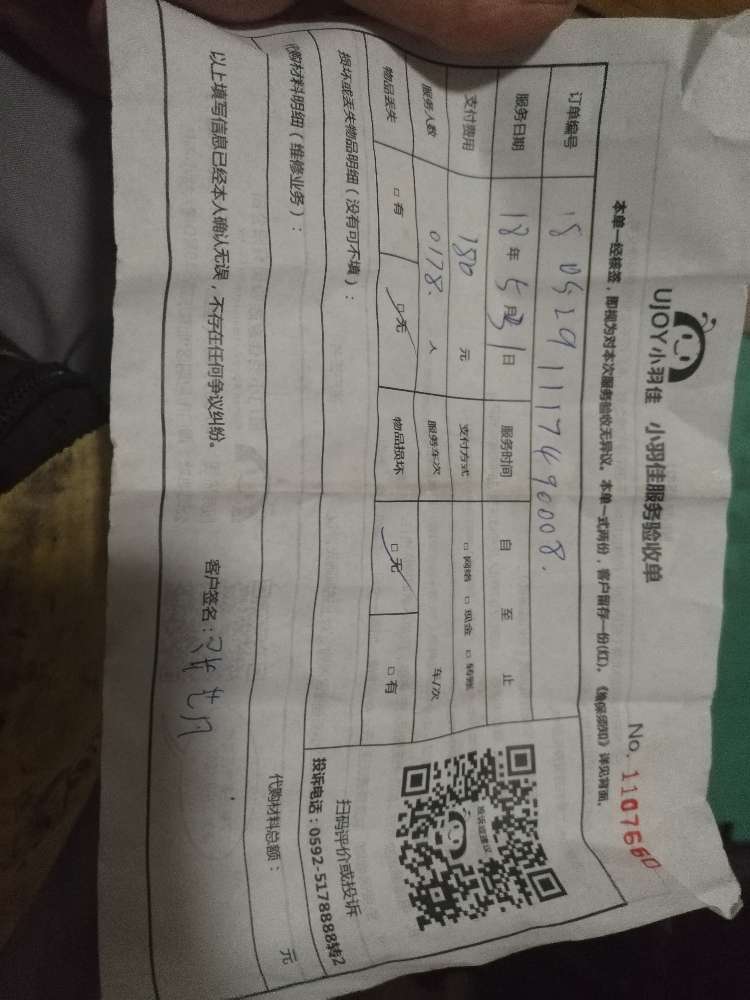 UJOY小羽佳 小羽佳服务验收单
No. 1107660
本单一经核签，即视为对本次服务验收无异议。本单一式两份，客户留存一份(红)。《渔保须知》详见背面。
订单编号 1805291117490008.
服务日期 18年5月31日 服务时间 自 至 止
支付费用 180 元 支付方式 □网络 □现金 □转账
服务人数 0178. 人 服务车次 车/次
物品丢失 □有 □无 物品损坏 □无 □有
损坏或丢失物品明细（没有可不填）：
扫码评价或投诉
投诉电话：0592-5178888转2
投诉或建议
代购材料明细（维修业务）：
代购材料总额： 元
以上填写信息已经本人确认无误，不存在任何争议纠纷。
客户签名：